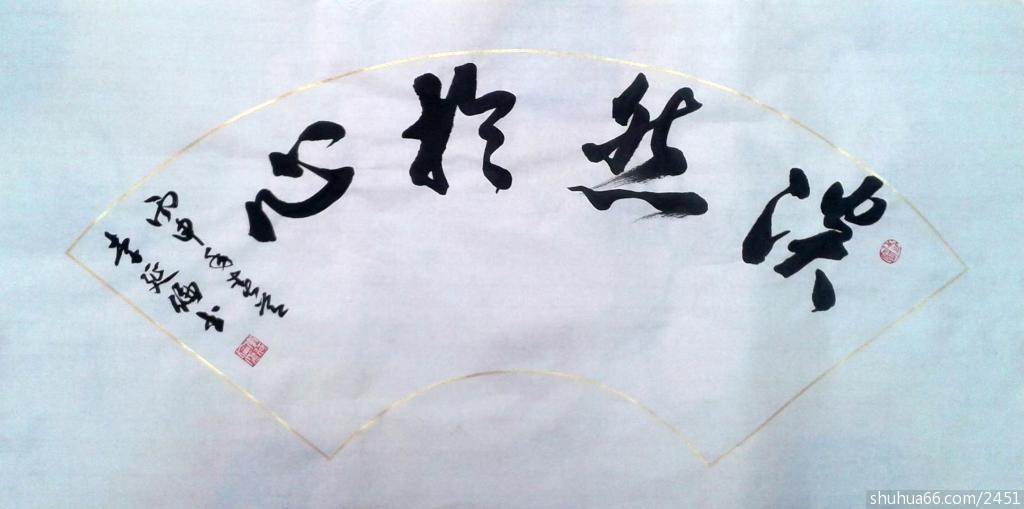 淡然於心
丙申年
李延 书
shuhua66.com/2451